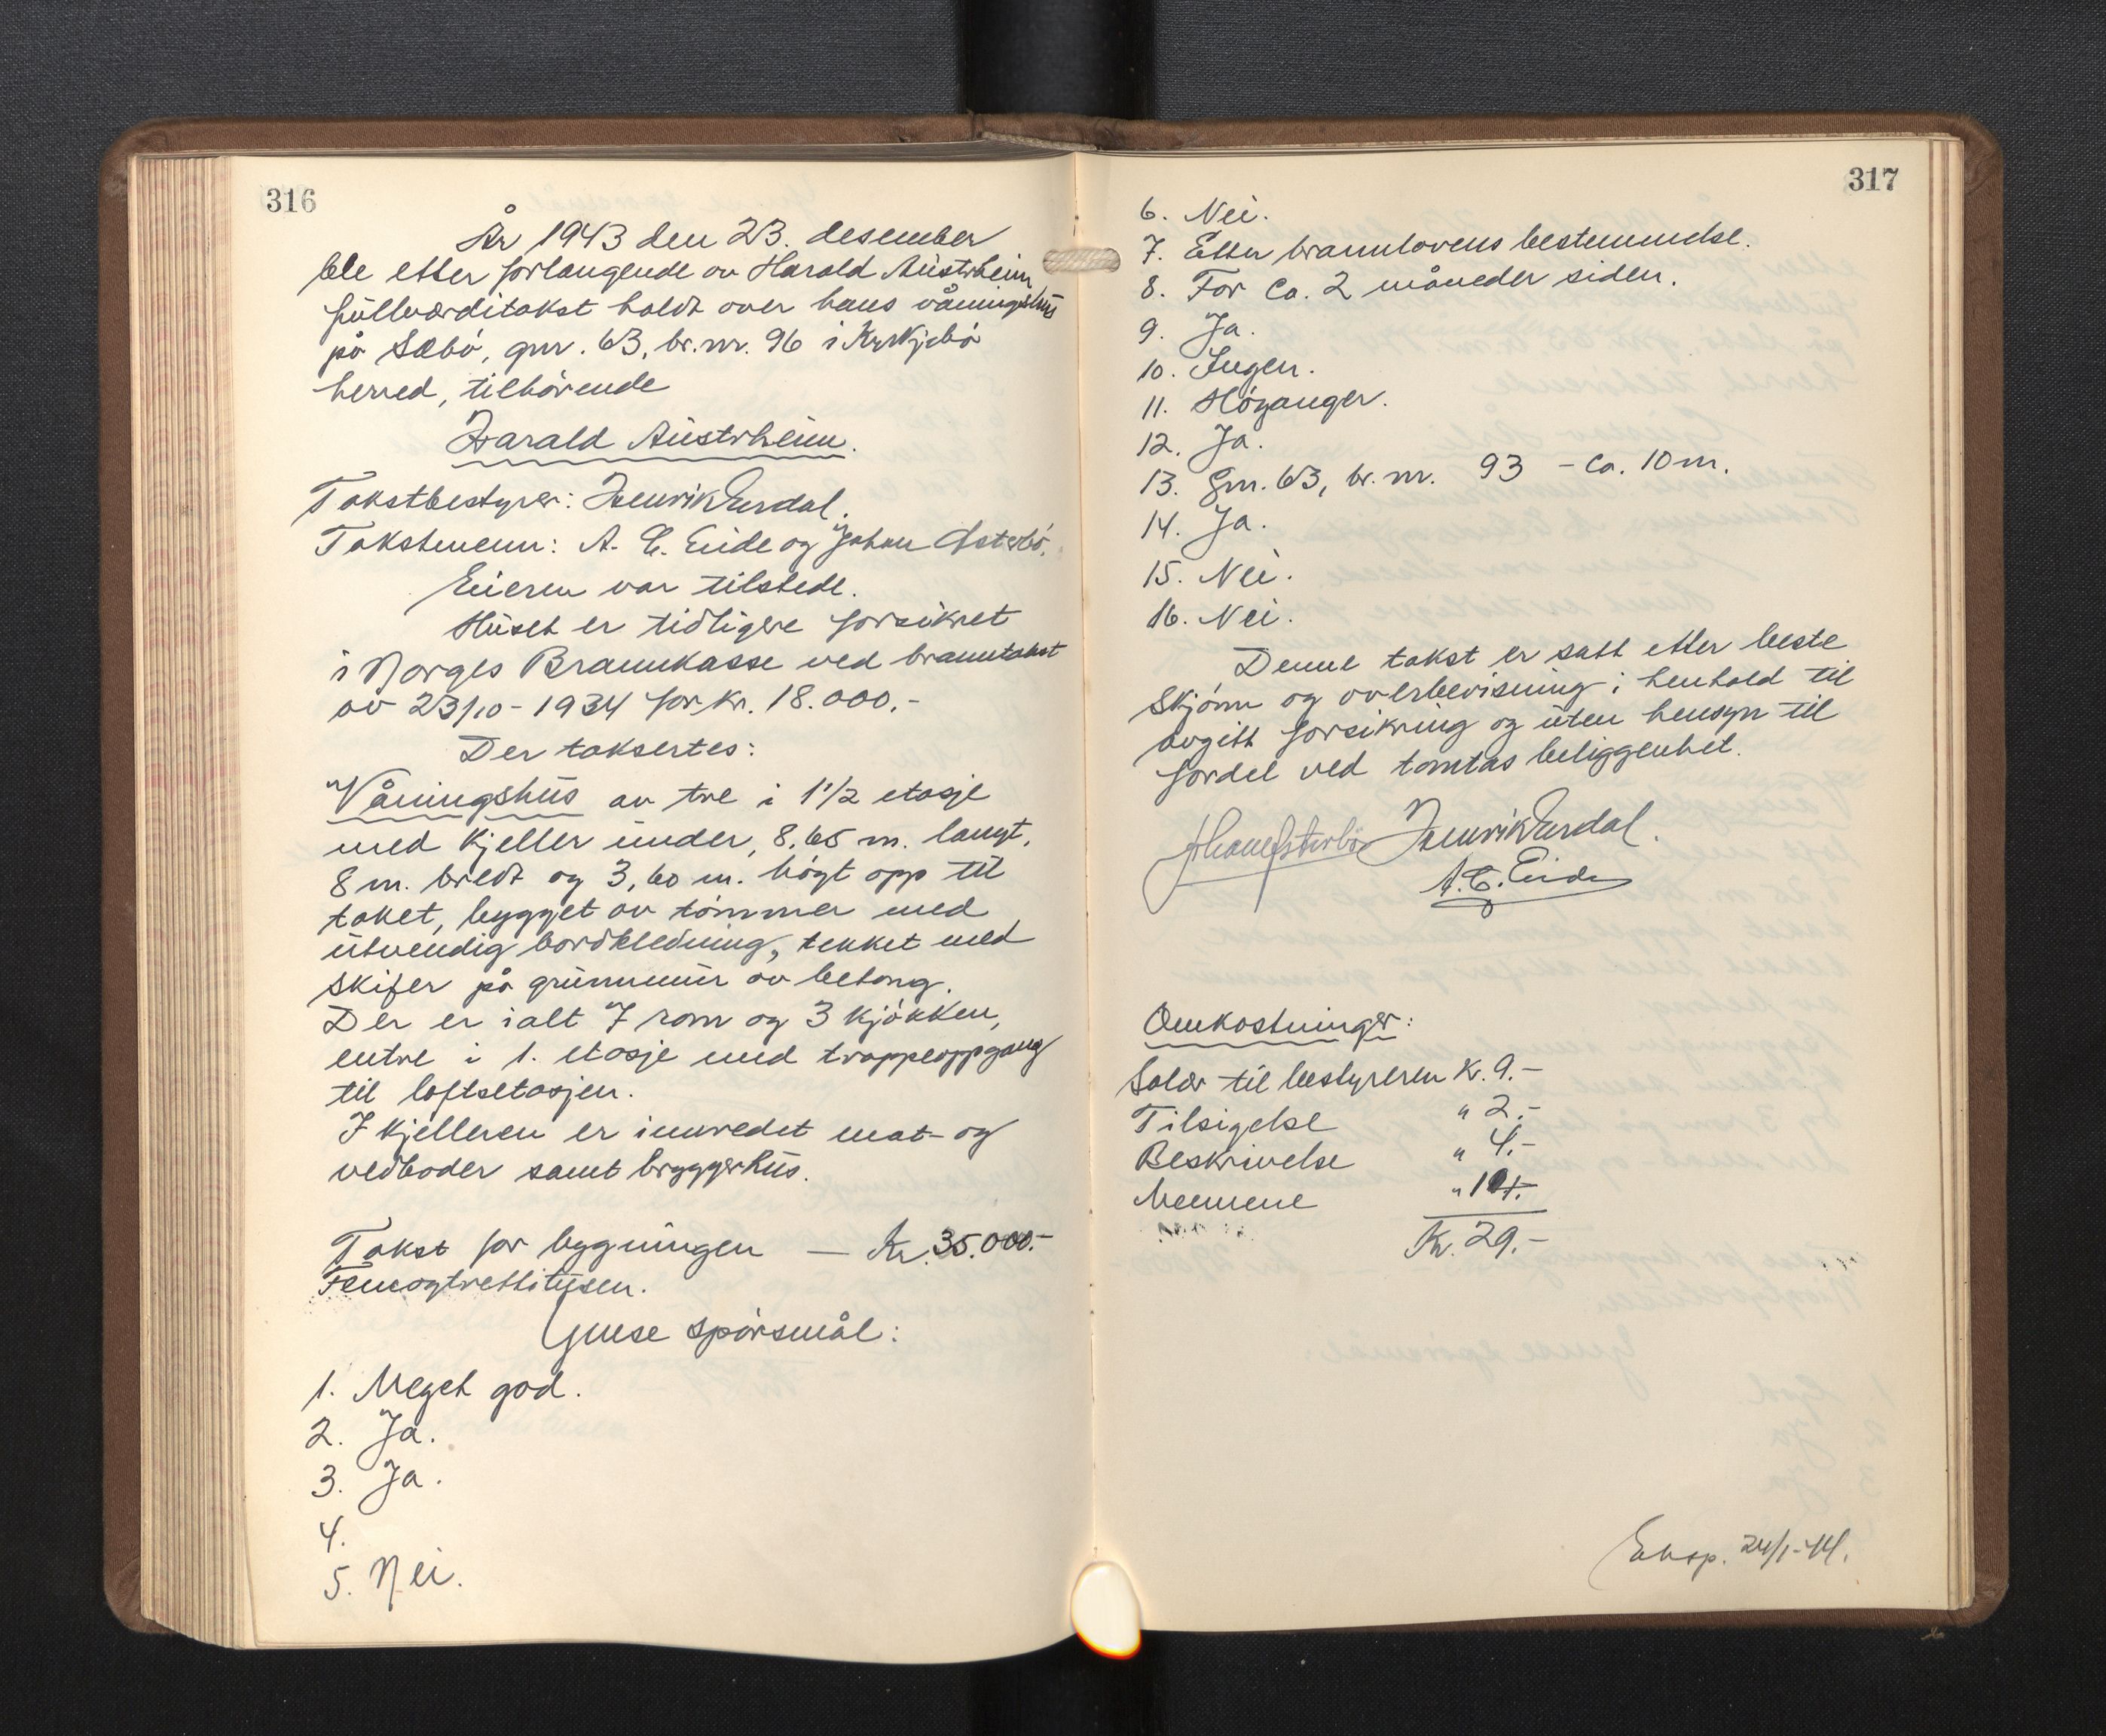 316
År 1943 den 23. desember
ble etter forlangende av Harald Austrheim
fullverditakst holdt over hans våningshus
på Sæbö, gnr. 63, br.nr. 96 i Kyrkjebö
herred, tilhörende
Harald Austrheim.
Takstbestyrer: Henrik Erdal.
Takstmenn: A. C. Eide og Johan Österbö.
Eieren var tilstede.
Huset er tidligere forsikret
i Norges Brannkasse ved branntakst
av 23/10-1934 for kr. 18.000.-
Der taksertes:
Våningshus av tre i 1 1/2 etasje
med kjeller under, 8,65 m. langt,
8 m. bredt og 3,60 m. högt opp til
taket, bygget av tömmer med
utvendig bordkledning, tekket med
skifer på grunnmur av betong.
Der er ialt 7 rom og 3 kjökken,
entre i 1. etasje med trappeoppgang
til loftsetasjen.
I kjelleren er innredet mat- og
vedboder samt bryggerhus.
Takst for bygningen — Kr. 35.000.-
Femogtrettitusen.
Gmse spörsmål:
1. Meget god.
2. Ja.
3. Ja.
4.
5. Nei.
317
6. Nei.
7. Etter brannlovens bestemmelse.
8. For ca. 2 måneder siden.
9. Ja.
10. Ingen.
11. Höyanger.
12. Ja.
13. Gnr. 63, br. nr. 93 - ca. 10 m.
14. Ja.
15. Nei.
16. Nei.
Denne takst er satt etter beste
skjönn og overbevisning i henhold til
avgitt forsikring og uten hensyn til
fordel ved tomtas beliggenhet.
Johan Österbö Henrik Erdal.
A. C. Eide
Omkostninger:
Salær til bestyreren Kr. 9.-
Tilsigelse " 2.-
Beskrivelse " 4.-
Mennene " 14.-
Kr. 29.-
Eksp. 24/1-44.